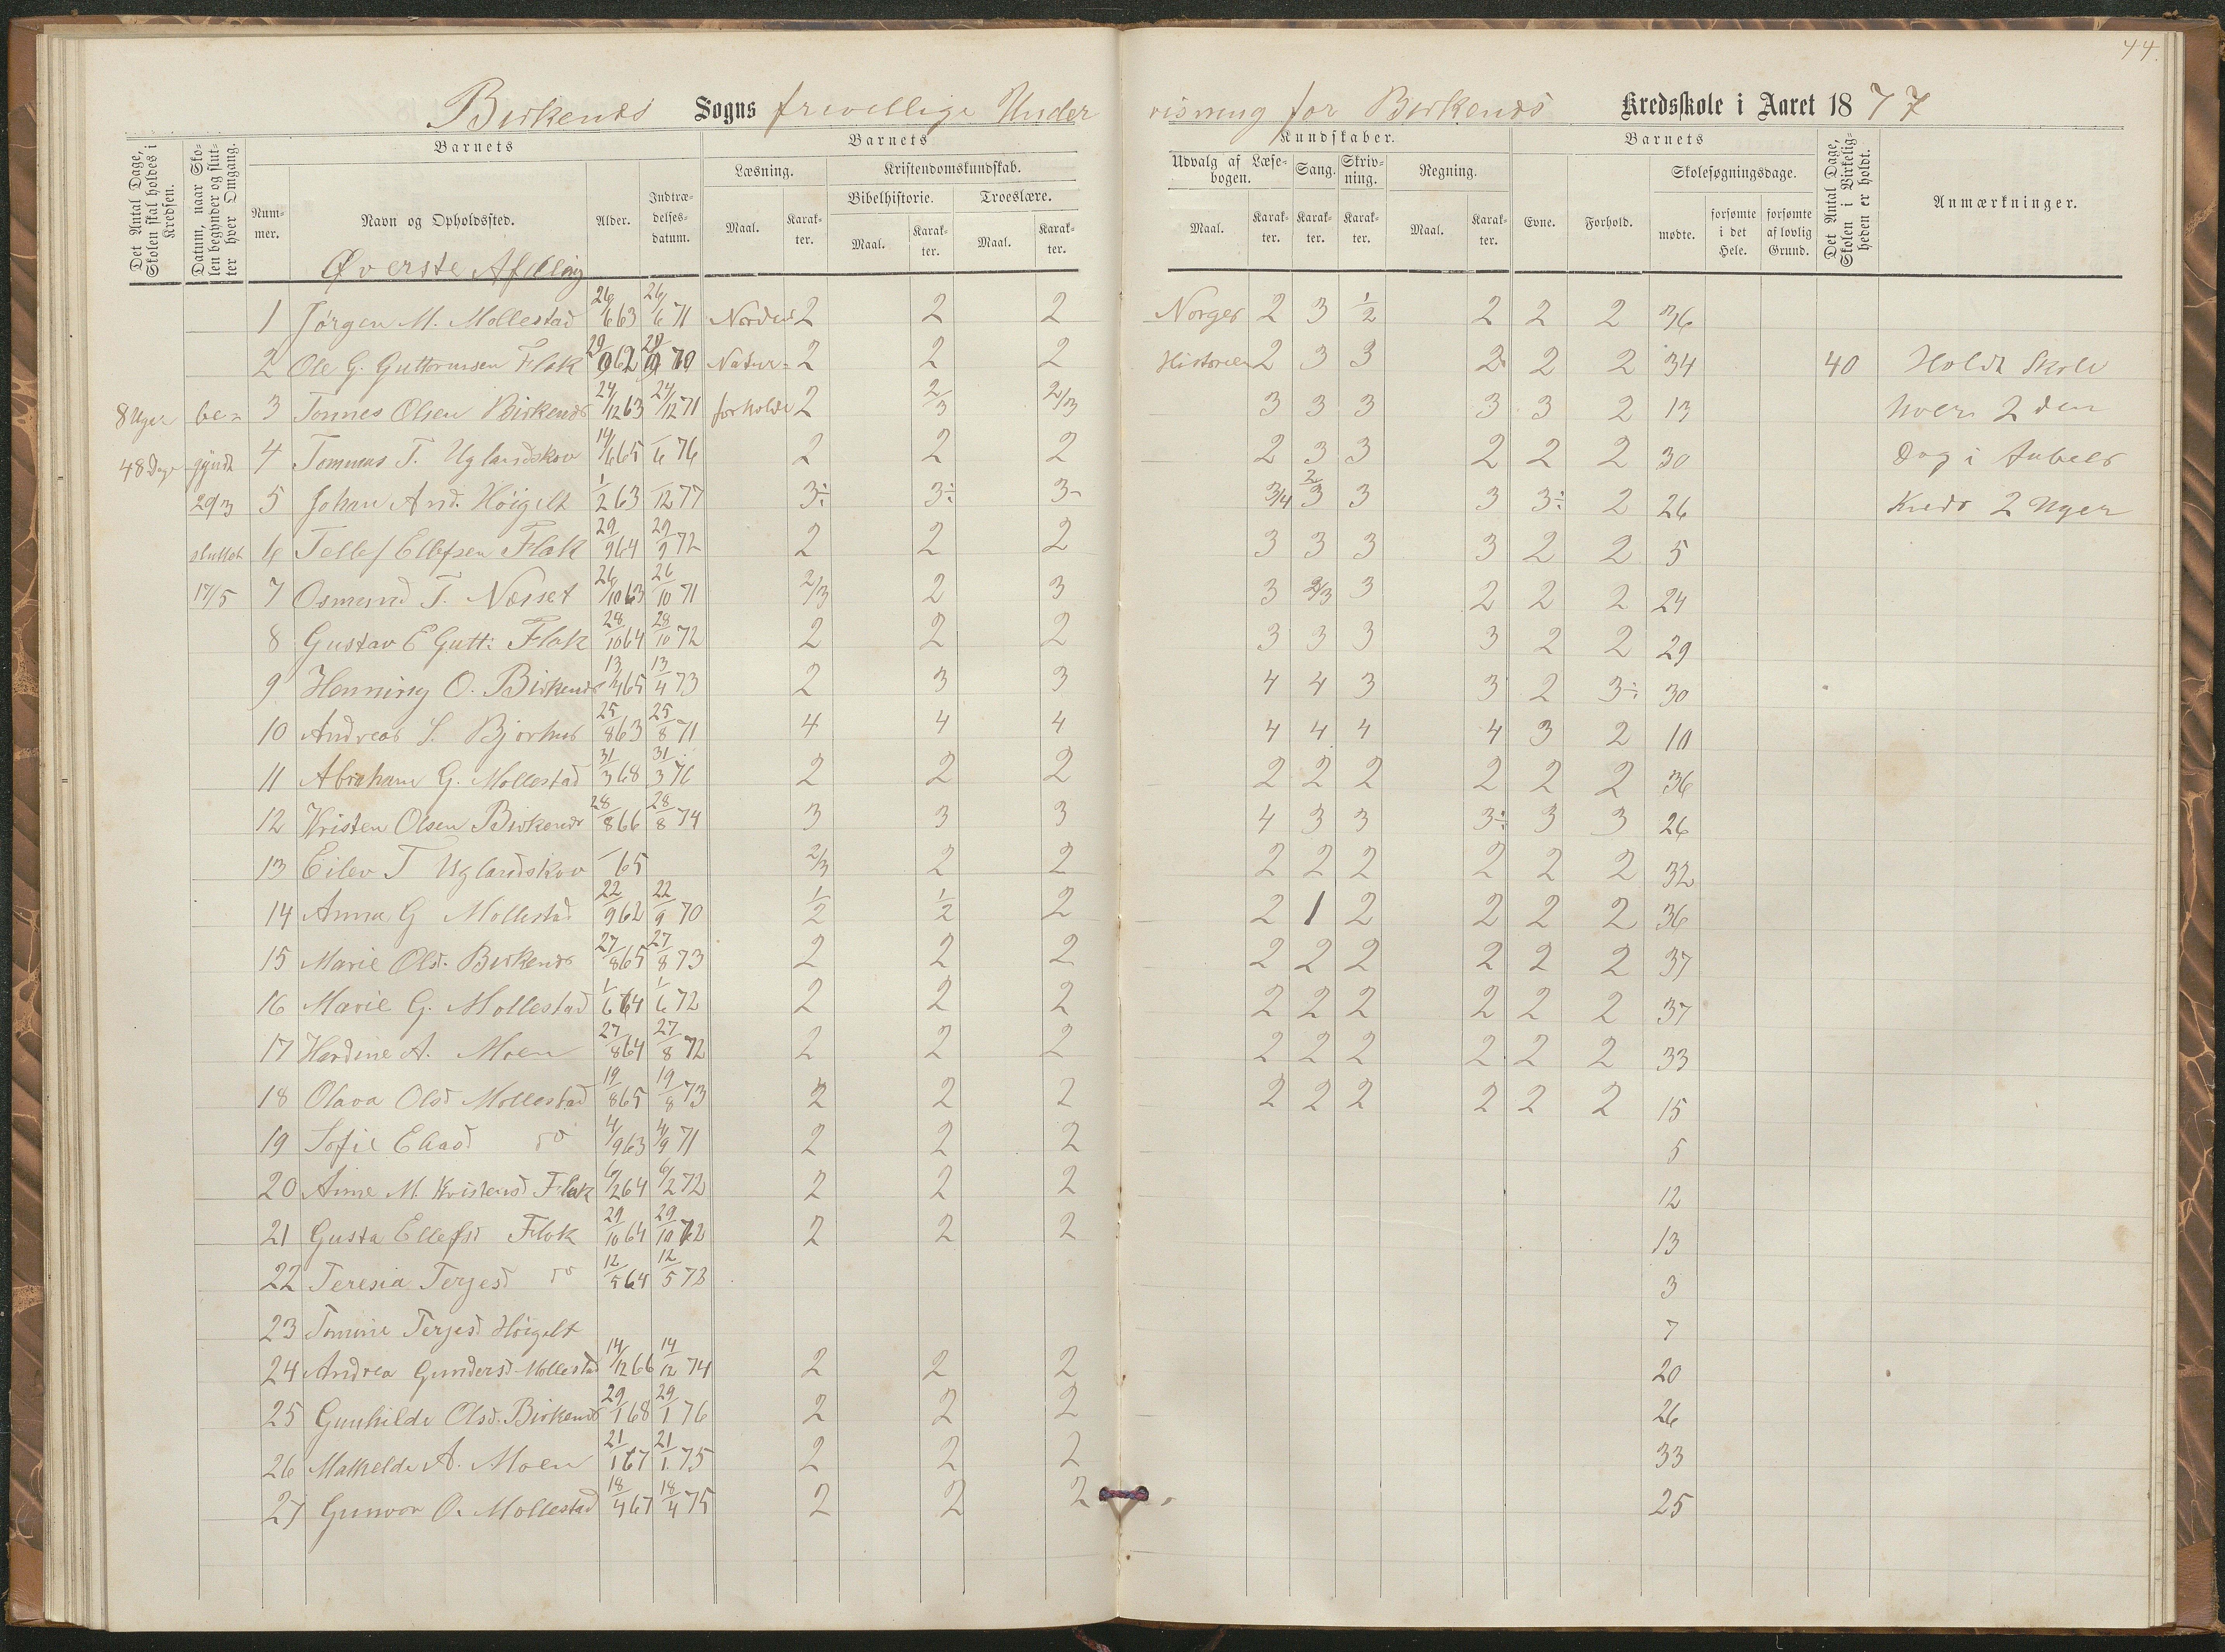 44.
Birkenes Sogns frivillige Undervisning for Birkenes Kredsskole i Aaret 1877
Det Antal Dage, Skolen skal holdes i Kredsen.
Datum, naar Skolen begynder og slutter hver Omgang.
Barnets
Nummer.
Navn og Opholdssted.
Alder.
Indtrædelsesdatum.
Barnets Kundskaber.
Læsning.
Maal.
Karakter.
Kristendomskundskab.
Bibelhistorie.
Maal.
Karakter.
Troeslære.
Maal.
Karakter.
Udvalg af Læsebogen.
Maal.
Karakter.
Sang.
Karakter.
Skrivning.
Karakter.
Regning.
Maal.
Karakter.
Barnets
Evne.
Forhold.
Skolesøgningsdage.
mødte.
forsømte i det Hele.
forsømte af lovlig Grund.
Det Antal Dage, Skolen i Virkeligheden er holdt.
Anmærkninger.
Øverste Afdeling
1 Jørgen M. Mollestad 26/6 63 26/6 71 Norden 2 2 2 Norges 2 3 1/2 2 2 2 36
2 Ole G. Guttormsen Flak 29/9 62 29/9 70 Natur- 2 2 2 Historien 2 3 3 2 2 2 34 40 Holdt Skole
8 Uger be= 3 Tønnes Olsen Birkenes 24/12 63 24/12 71 forholde 2 2/3 2/3 3 3 3 3 3 2 13 hver 2 den
48 Dage gyndt 4 Tommas T. Uglandskov 14/6 65 /6 76 2 2 2 2 3 3 2 2 2 30 Dag i
29/3 5 Johan And. Høigilt 1/2 63 /12 77 3÷ 3÷ 3- 3/4 2/3 3 3 3÷ 2 26 Kreds 2 Uger
sluttet 6 Tellef Ellefsen Flak 29/9 64 29/9 72 2 2 2 3 3 3 3 2 2 5
17/5 7 Osmund T. Næsset 26/10 63 26/10 71 2/3 2 3 3 2/3 3 2 2 2 24
8 Gustav E Gutt: Flak 28/10 64 28/10 72 2 2 2 3 3 3 3 2 2 29
9 Henning O. Birkenes 13/4 65 13/4 73 2 3 3 4 4 3 3 2 3÷ 30
10 Andreas S. Bjorhus 25/8 63 25/8 71 4 4 4 4 4 4 4 3 2 10
11 Abraham G. Mollestad 31/3 68 31/3 76 2 2 2 2 2 2 2 2 2 36
12 Kristen Olsen Birkenes 28/8 66 28/8 74 3 3 3 4 3 3 3÷ 3 3 26
13 Eilev T Uglandskov 65 2/3 2 2 2 2 2 2 2 2 32
14 Anna G Mollestad 22/9 62 22/9 70 1/2 1/2 2 2 1 2 2 2 2 36
15 Marie Olsd. Birkenes 27/8 65 27/8 73 2 2 2 2 2 2 2 2 2 37
16 Marie G. Mollestad 1/6 64 1/6 72 2 2 2 2 2 2 2 2 2 37
17 Hardine A. Moen 27/8 64 27/8 72 2 2 2 2 2 2 2 2 2 33
18 Olava Olsd Mollestad 19/8 65 19/8 73 2 2 2 2 2 2 2 2 2 15
19 Sofie do 4/9 63 4/9 71 2 2 2 5
20 Anne M. Kristensd Flak 6/2 64 6/2 72 2 2 2 12
21 Gusta Ellefsd Flak 29/10 64 29/10 72 2 2 2 13
22 Teresia Terjesd do 12/5 12/5 3
23 Tomine Terjesd Høigilt 7
24 Andrea Gundersd Mollestad 14/12 66 14/12 74 2 2 2 20
25 Gunhilde Olsd. Birkenes 29/1 68 29/1 76 2 2 2 26
26 Mathelde A. Moen 21/1 67 21/1 75 2 2 2 33
27 Gunvor O. Mollestad 18/4 67 18/4 75 2 2 2 25